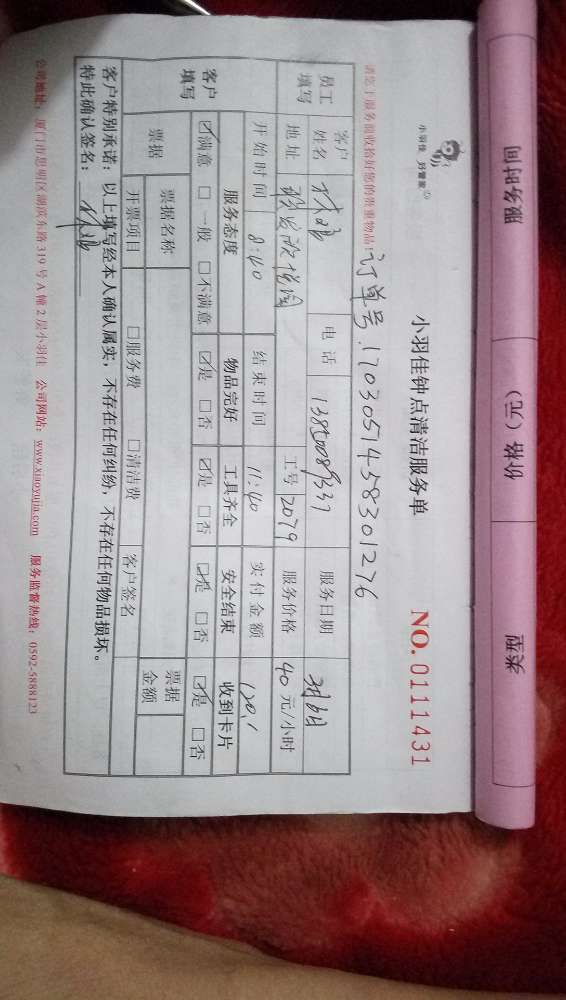 服务时间 价格（元） 类型
小羽佳 好管家
小羽佳钟点清洁服务单
NO. 0111431
订单号.17030514583012 76
请您于服务前收拾好您的贵重物品！
员工填写
客户姓名 电话 服务日期
地址 工号 2079 服务价格 40 元/小时
开始时间 8:40 结束时间 11:40 实付金额 120.
客户填写
服务态度 物品完好 工具齐全 安全结束 收到卡片
☑满意 □一般 □不满意 ☑是 □否 ☑是 □否 ☑是 □否 ☑是 □否
票据 票据名称 票据金额
开票项目 □服务费 □清洁费 客户签名
客户特别承诺：以上填写经本人确认属实，不存在任何纠纷，不存在任何物品损坏。
特此确认签名：
公司地址：厦门市思明区湖滨东路 319 号 A 幢 2 层小羽佳 公司网站：www.xiaoyujia.com 服务监督热线：0592-5888123